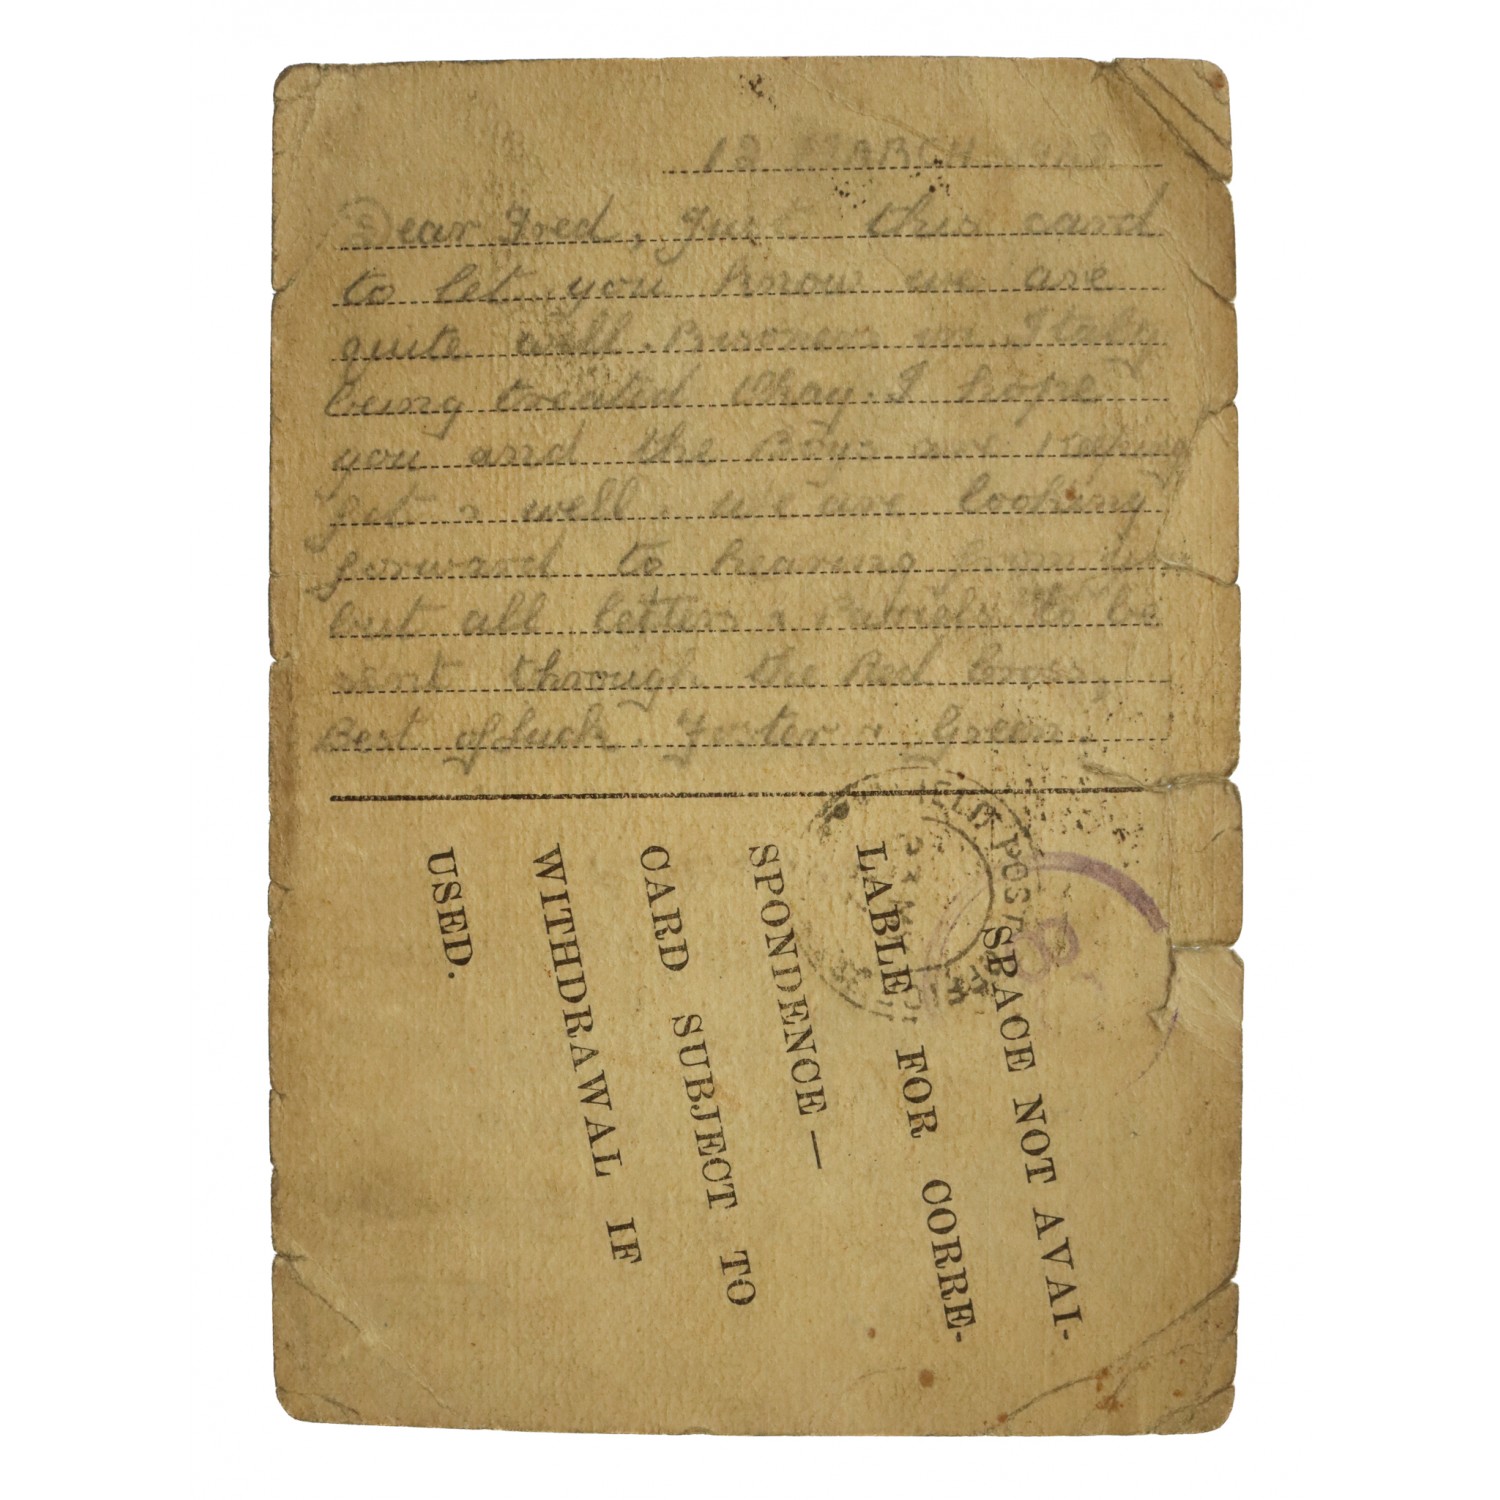 12 MARCH
Dear Fred, Just this card
to let you know we are
quite well. Prisoners in Italy
being treated Okay. I hope
you and the Boys are keeping
fit & well. we are looking
forward to hearing from
but all letters & Parcels to be
sent through the Red Cross,
Best of Luck. Foster & Green.
FIELD POST
SPACE NOT AVAI-
LABLE FOR CORRE-
SPONDENCE —
CARD SUBJECT TO
WITHDRAWAL IF
USED.